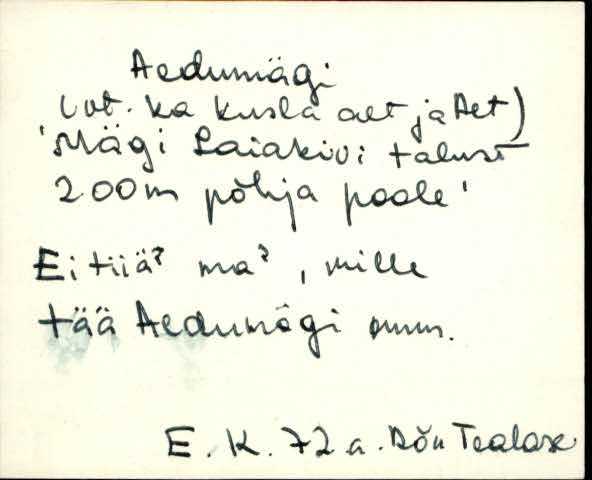 Aedumägi
(vt. ka Kusla alt ja Aet)
'Mägi Laiakivi talust
200m põhja poole'
Ei tiiä? ma?, mille
tää Aedumägi onn.
E. K. 72 a. Rõu Tealase